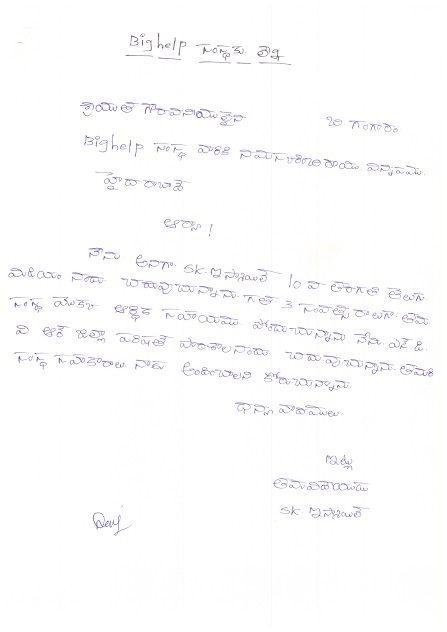 Bighelp సంస్థకు లేఖ
శ్రీయుత గౌరవనీయులైన బి గంగారాం
Bighelp సంస్థ వారికి నమస్కరించి రాయు విన్నపము.
హైదరాబాద్
ఆర్యా!
నేను అనగా SK. ఇస్మాయిల్ 10 వ తరగతి తెలుగు
మిడియం నందు చదువుచున్నాను. గత 3 సంవత్సరాలుగా తమ
సంస్థ యొక్క ఆర్థిక సహాయము పొందుచున్నాను నేను ఎస్. డి.
వి ఆర్ జిల్లా పరిషత్ పాఠశాలనందు చదువుచున్నాను. తమరి
సంస్థ సహకారాలు నాకు అందించాలని కోరుచున్నాను.
ధన్యవాదములు
ఇట్లు
తమవిధేయుడు
SK. ఇస్మాయిల్